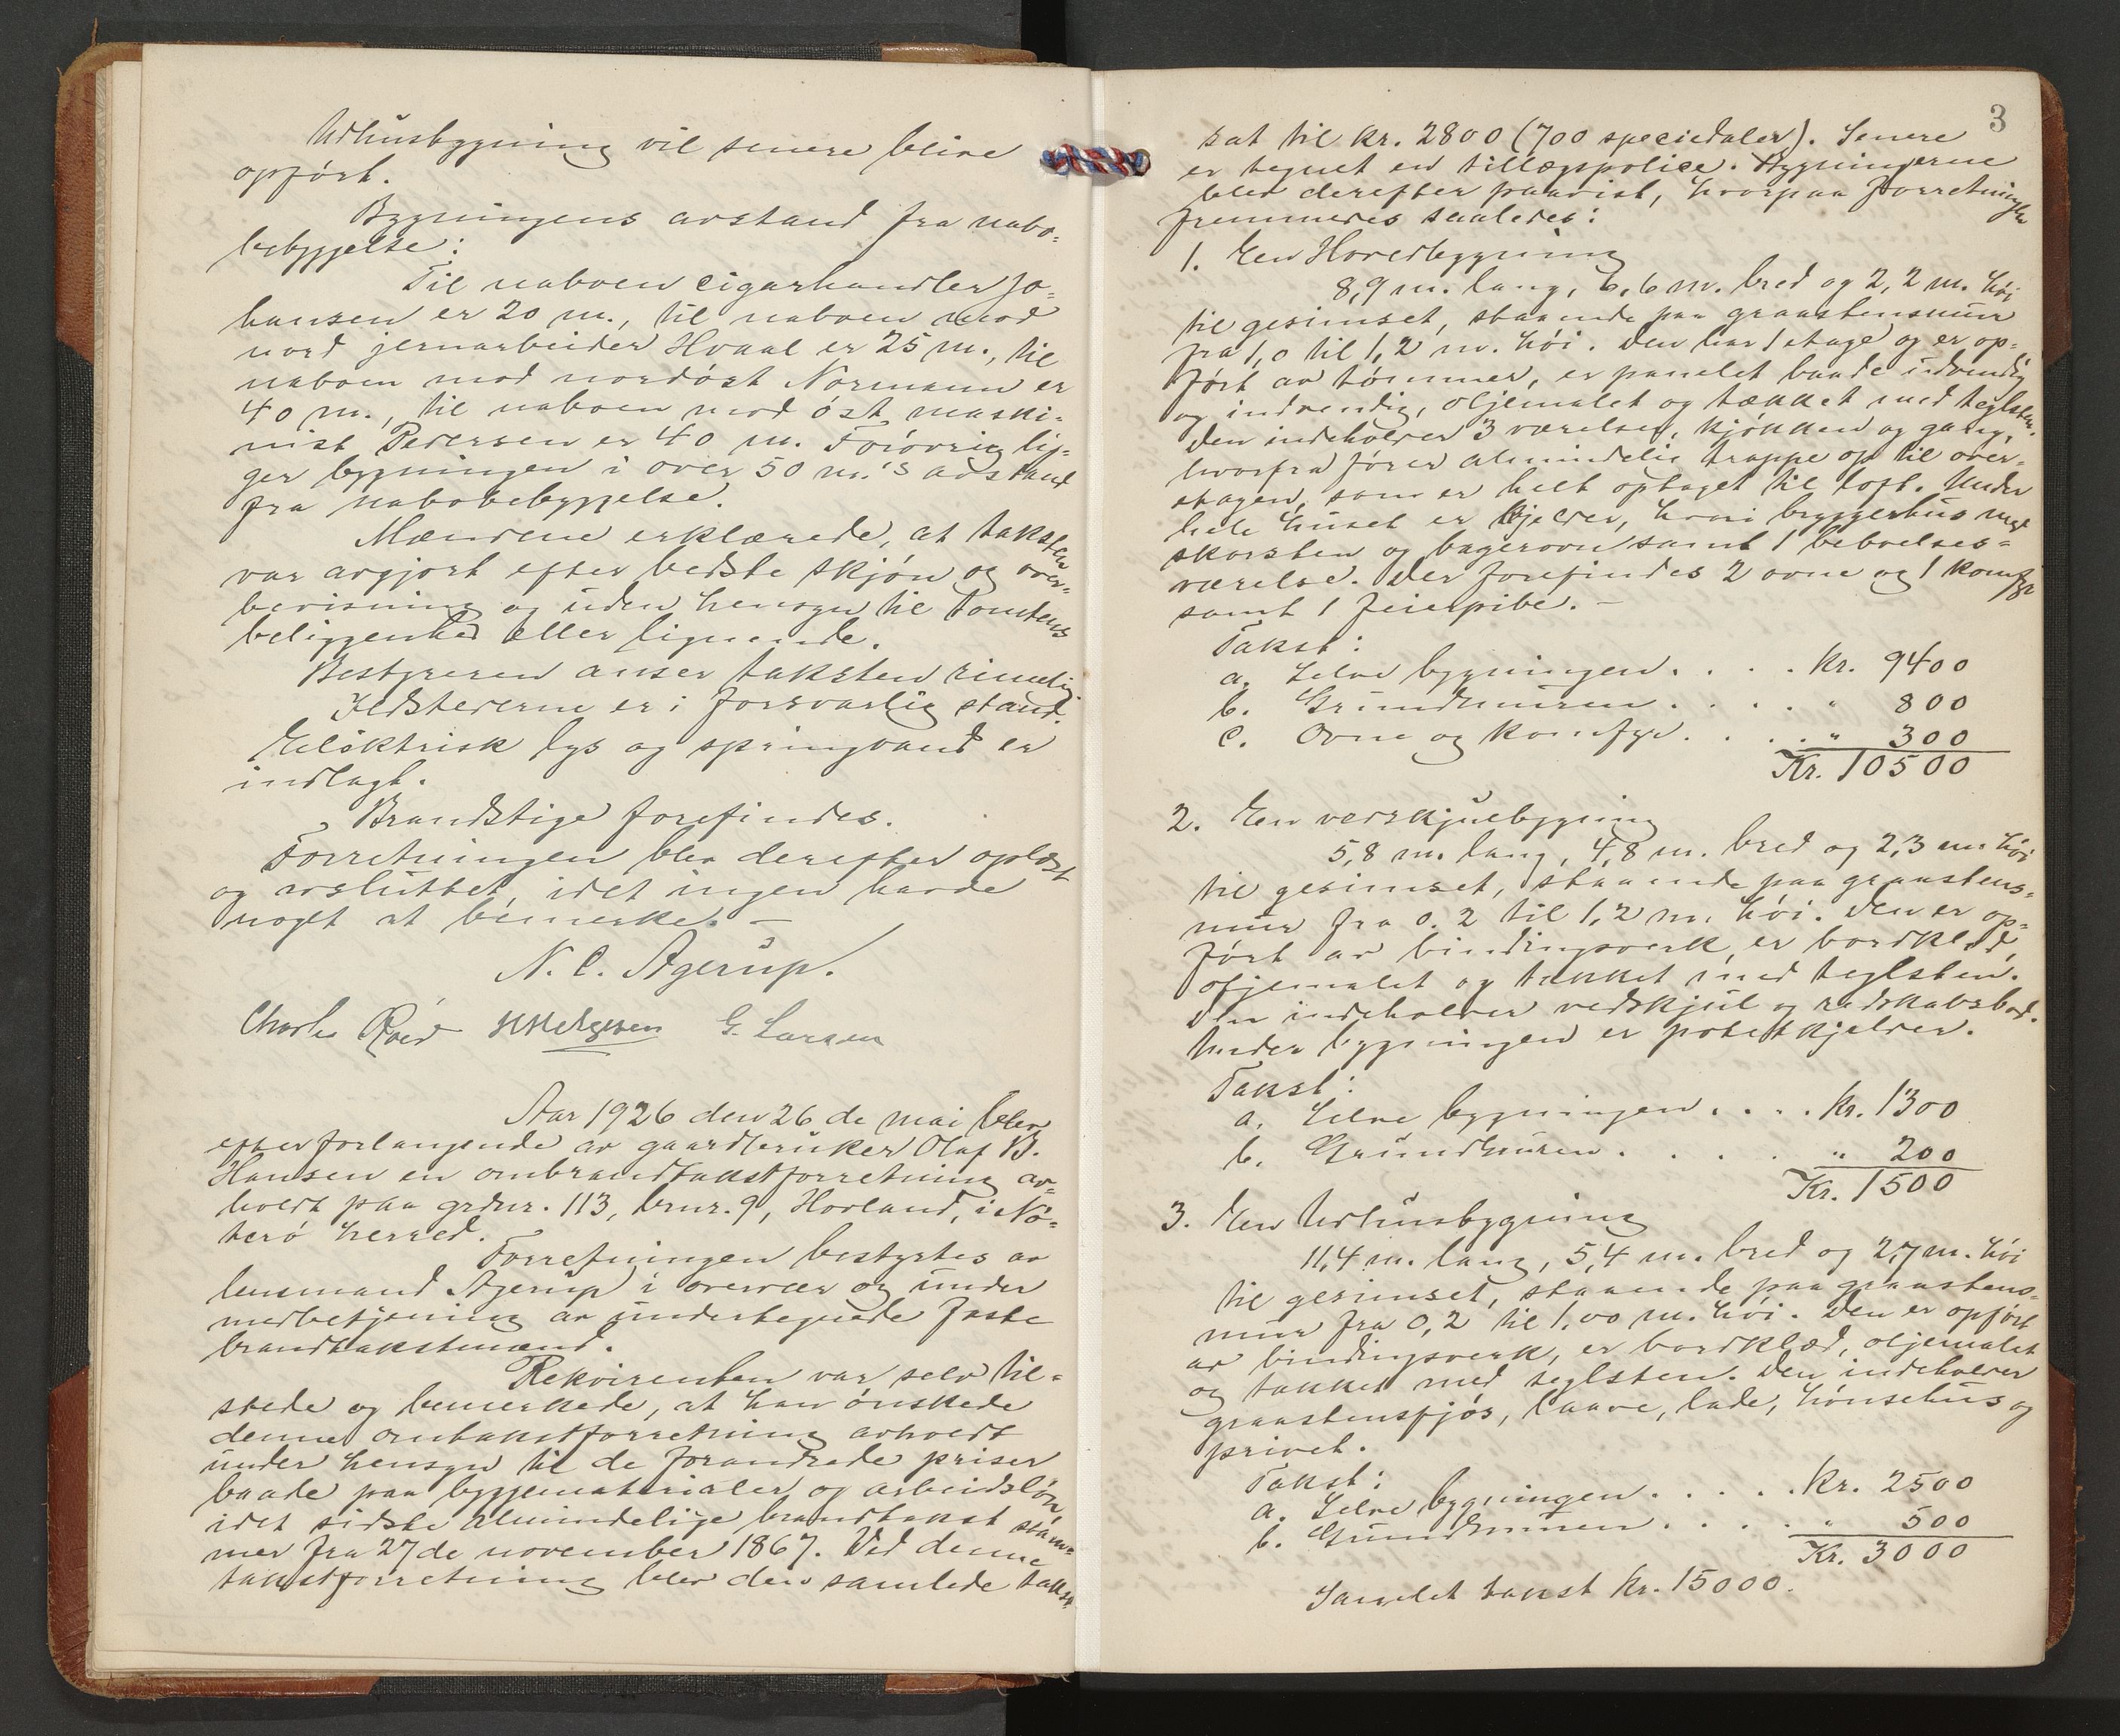 Udhusbygning vil senere blive
opført.
Bygningens avstand fra nabo-
bebyggelse:
Til naboen cigarhandler Jo-
hansen er 20 m., til naboen mod
nord jernarbeider Hvaal er 25 m., til
naboen mod nordøst Normann er
40 m., til naboen mod øst maski-
nist Pedersen er 40 m. Forøvrig lig-
ger bygningen i over 50 m.'s avstand
fra nabobebyggelse.
Mændene erklærede, at taksten
var avgjort efter bedste skjøn og over-
bevisning og uden hensyn til tomtens
beliggenhed eller lignende.
Bestyreren anser taksten rimelig
Ildstederne er i forsvarlig stand.
Elektrisk lys og springvand er
indlagt.
Brandstige forefindes.
Forretningen blev derefter oplæst
og avsluttet, idet ingen havde
noget at bemerke. —
N. C. Agerup.
Charles Røed G. Larsen
Aar 1926 den 26 de mai blev
efter forlangende av gaardbruker Olaf B.
Hansen en ombrandtakstforretning av-
holdt paa grdnr. 113, brnr. 9, Hovland, i Nø-
terø herred.
Forretningen bestyrtes av
lensmand Agerup i overvær og under
medbetjening av undertegnede faste
brandtakstmænd.
Rekvirenten var selv til-
stede og bemerkede, at han ønskede
denne omtakstforretning avholdt
under hensyn til de forandrede priser
baade paa byggematerialer og arbeidsløn
idet sidste almindelige brandtakst stam-
mer fra 27de november 1867. Ved denne
takstforretning blev den samlede takst
3
sat til kr. 2800 (700 speciedaler). Senere
er tegnet en tillægspolice. Bygningerne
blev derefter paavist, hvorpaa forretningen
fremmedes saaledes:
1. En Hovedbygning
8,9 m. lang, 6,6 m. bred og 2,2 m. høi
til gesimset, staaende paa graastensmur
fra 1,0 til 1,2 m. høi. Den har 1 etage og er op-
ført av tømmer, er panelet baade udvendig
og indvendig, oljemalet og tækket med teglsten.
Den indeholder 3 værelser, kjøkken og gang,
hvorfra fører almindelig trappe op til over-
etagen, som er helt optaget til loft. Under
hele huset er kjelder, hvori bryggerhus med
skorsten og bagerovn samt 1 beboelses-
værelse. Der forefindes 2 ovne og 1 komfyr
samt 1 feierpibe. —
Takst:
a. Selve bygningen. . . . Kr. 9400
b. Grundmuren. . . . . " 800
c. Ovne og komfyr. . . . . " 300
Kr. 10500
2. En vedskjulbygning
5,8 m. lang, 4,8 m. bred og 2,3 m. høi
til gesimset, staaende paa graastens-
mur fra 0.2 til 1,2 m. høi. Den er op-
ført av bindingsverk, er bordklæd,
oljemalet og tækket med teglsten.
Den indeholder vedskjul og redskabsbod.
Under bygningen er potetkjelder.
Takst:
a. Selve bygningen. . . . Kr. 1300
b. Grundmuren. . . . . " 200
Kr. 1500
3. En Udhusbygning
11,4 m. lang, 5,4 m. bred og 2,7 m. høi
til gesimset, staaende paa graastens-
mur fra 0,2 til 1,00 m. høi. Den er opført
av bindingsverk, er bordklæd, oljemalet
og tækket med teglsten. Den indeholder
graastensfjøs, laave, lade, hønsehus og
privet.
Takst:
a. Selve bygningen. . . . . Kr. 2500
b. Grundmuren. . . . . " 500
Kr. 3000
Samlet takst kr. 15000.